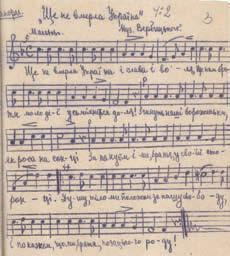 „Ще не вмерла Україна" 4:2 3
Муз. Вербицького.
Ще не вмерла Україна і слава і во - ля, ще нам бра-
тя молоді-ї усміхнеться доля! Згинуть наші вороженьки,
як роса на сон-ці За
ро - ді. Душу, тіло ми положим за нашу сво-бо - ду,
і покажем, що ми, браття, козацько-го ро-ду!